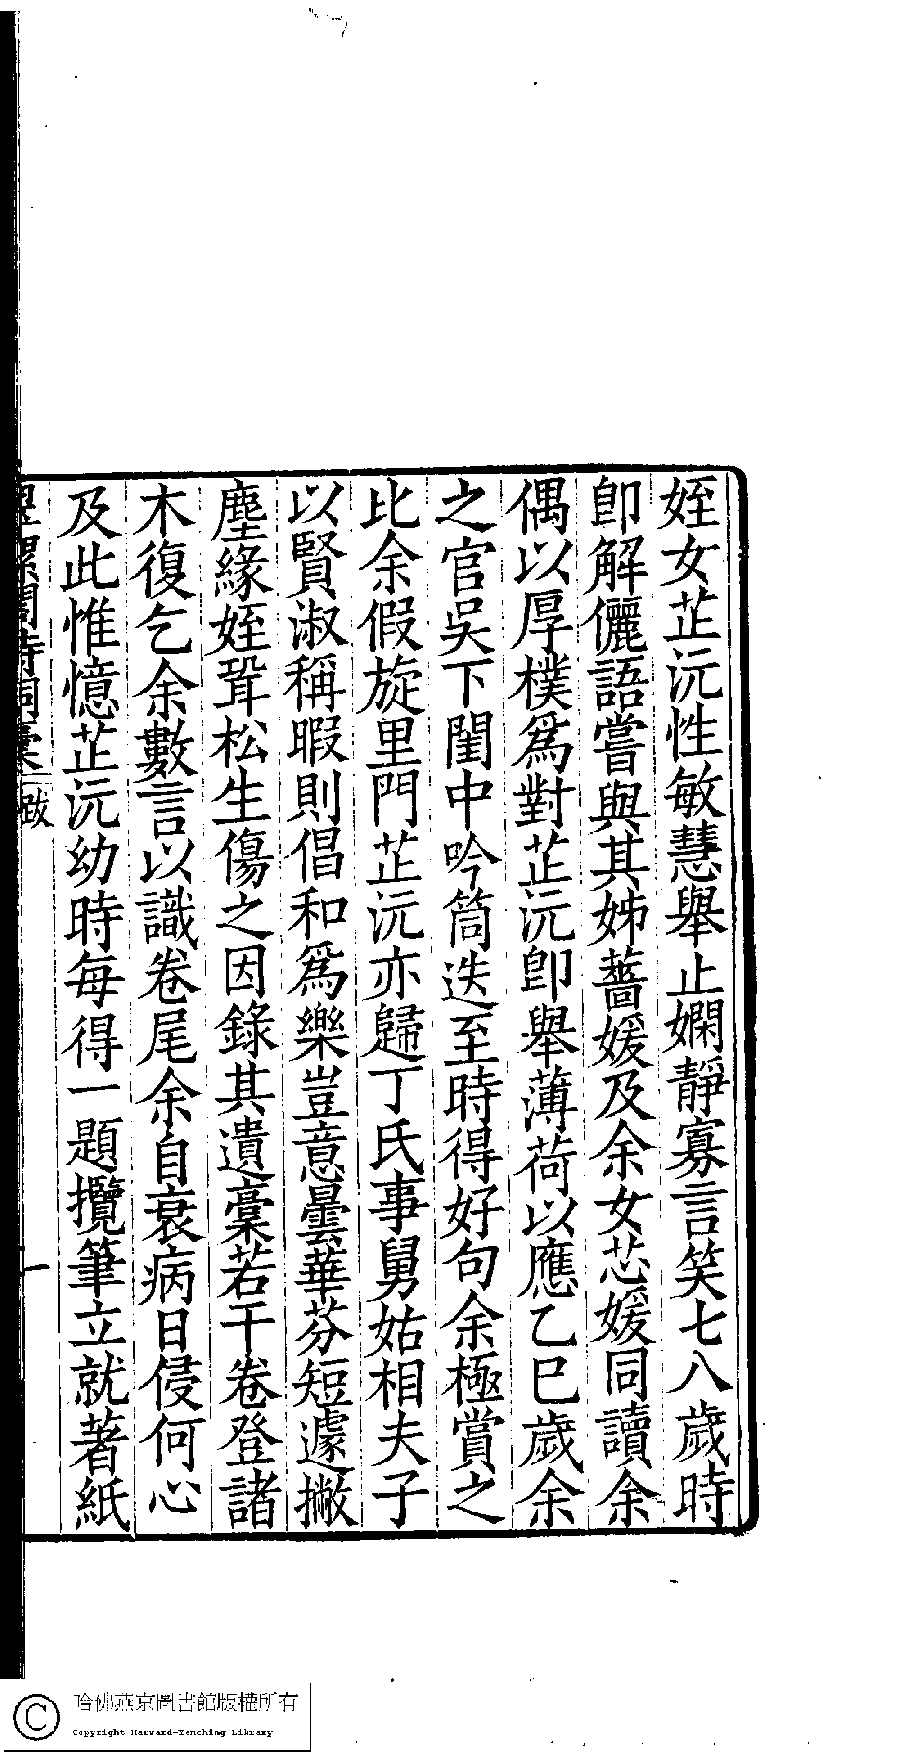 姪女芷沅性敏慧舉止嫻靜寡言笑七八歲時
卽解儷語嘗與其姊薔媛及余女芯媛同讀余
偶以厚樸爲對芷沅卽舉薄荷以應乙巳歲余
之官吳下閨中吟筒迭至時得好句余極賞之
比余假旋里門芷沅亦歸丁氏事舅姑相夫子
以賢淑稱暇則倡和爲樂豈意曇華芬短遽撇
塵緣姪鞏松生傷之因錄其遺稾若干卷登諸
木復乞余數言以識卷尾余自衰病日侵何心
及此惟憶芷沅幼時每得一題攬筆立就著紙
閣詩詞稾 跋 一
哈佛燕京圖書館版權所有
Copyright Harvard-Yenching Library